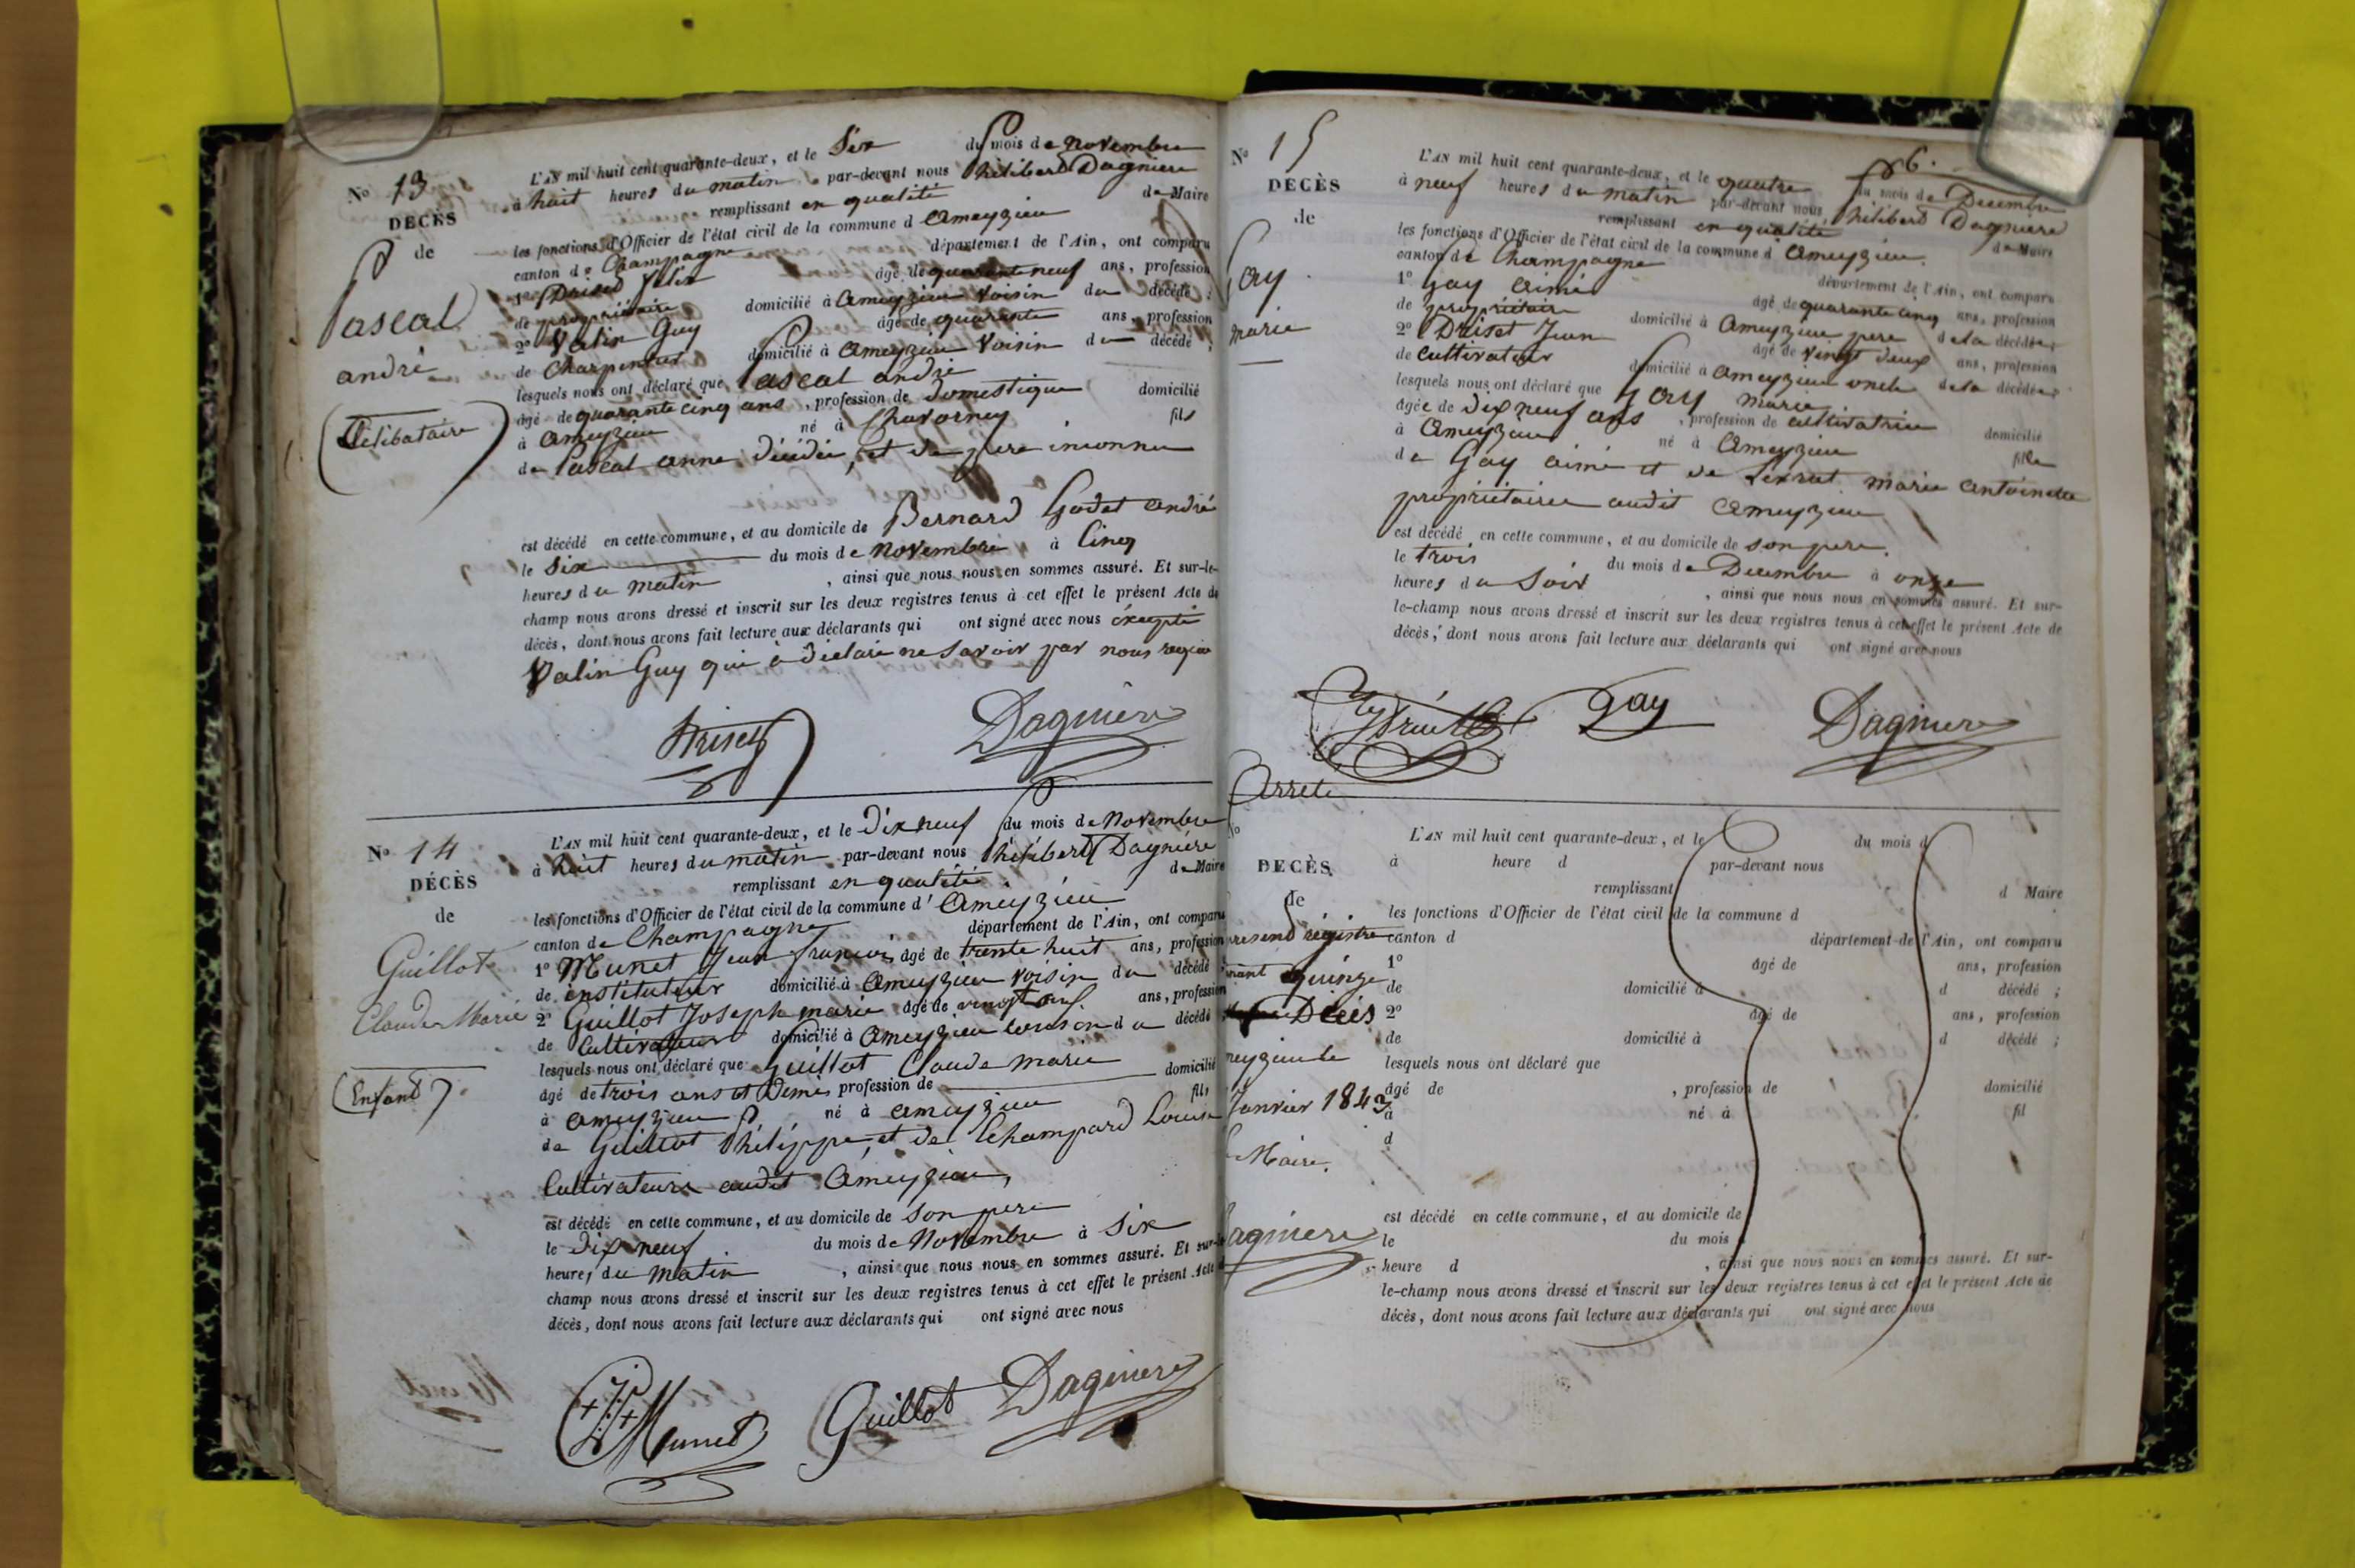 N° 13
DÉCÈS
de
Pascal
andré
Célibataire
L'AN mil huit cent quarante-deux, et le Six du mois de novembre
à huit heures du matin par-devant nous Philibert Dagniere
remplissant en qualité de Maire
les fonctions d'Officier de l'état civil de la commune d Ameyzieu
canton de Champagne département de l'Ain, ont comparu
1° Driset felix âgé de quarante neuf ans, profession
de propriétaire domicilié à Ameyzieu voisin du décédé ;
2° Valin Guy âgé de quarante ans, profession
de Charpentier domicilié à Ameyzieu Voisin du décédé ;
lesquels nous ont déclaré que Pascal andré
âgé de quarante cinq ans , profession de domestique domicilié
à Ameyzieu né à Chavorney fils
de Pascal anne décédée, et de pere inconnu
est décédé en cette commune, et au domicile de Bernard Godet andré
le Six du mois de Novembre à Cinq
heures du matin , ainsi que nous nous en sommes assuré. Et sur-le-
champ nous avons dressé et inscrit sur les deux registres tenus à cet effet le présent Acte de
décès, dont nous avons fait lecture aux déclarants qui ont signé avec nous éxcepté
Valin Guy qui à déclaré ne Savoir par nous requis
Driset Dagniere
N° 14
DÉCÈS
de
Guillot
Claude Marie
(Enfant)
L'AN mil huit cent quarante-deux, et le Dix neuf du mois de Novembre
à huit heures du matin par-devant nous Philibert Dagniere
remplissant en qualité de Maire
les fonctions d'Officier de l'état civil de la commune d' Ameyzieu
canton de Champagne département de l'Ain, ont comparu
1° Munet Jean françois âgé de trente huit ans, profession
de instituteur domicilié à Ameyzieu voisin du décédé ;
2° Guillot Joseph marie âgé de vingt neuf ans, profession
de Cultivateur domicilié à Ameyzieu cousin du décédé ;
lesquels nous ont déclaré que Guillot Claude marie
âgé de trois ans et Demis profession de domicilié
à Ameyzieu né à Ameyzieu fils
de Guillot Philippe, et de Champard Louise
Cultivateurs audit Ameyzieu,
est décédé en cette commune, et au domicile de Son pere
le Dix neuf du mois de Novembre à Six
heures du matin , ainsi que nous nous en sommes assuré. Et sur-le-
champ nous avons dressé et inscrit sur les deux registres tenus à cet effet le présent Acte d
décès, dont nous avons fait lecture aux déclarants qui ont signé avec nous
Munet Guillot Dagniere
N° 15
DÉCÈS
de
Gay
marie
6.
L'AN mil huit cent quarante-deux, et le quatre du mois de Decembre
à neuf heures du matin par-devant nous Philibert Dagniere
remplissant en qualité de Maire
les fonctions d'Officier de l'état civil de la commune d' Ameyzieu
canton de Champagne département de l'Ain, ont comparu
1° Gay Aimé âgé de quarante cinq ans, profession
de propriétaire domicilié à Ameyzieu pere de la décédée ;
2° Driset Jean âgé de vingt deux ans, profession
de Cultivateur domicilié à Ameyzieu oncle de la décédée ;
lesquels nous ont déclaré que Gay marie
âgée de dix neuf ans , profession de cultivatrice domicilié
à Ameyzieu né à Ameyzieu fille
de Gay aimé et de marie antoinette
propriétaires audit Ameyzieu
est décédé en cette commune, et au domicile de son pere.
le trois du mois de Decembre à onze
heures du Soir , ainsi que nous nous en sommes assuré. Et sur-
le-champ nous avons dressé et inscrit sur les deux registres tenus à cet effet le présent Acte de
décès, dont nous avons fait lecture aux déclarants qui ont signé avec nous
Gay Dagniere
Arrêté
resent régistre
quinze
Décés
Janvier 1843
Maire.
Dagniere
DÉCÈS
de
L'AN mil huit cent quarante-deux, et le du mois d
à heure d par-devant nous
remplissant d Maire
les fonctions d'Officier de l'état civil de la commune d
canton d département de l'Ain, ont comparu
1° âgé de ans, profession
de domicilié à d décédé ;
2° âgé de ans, profession
de domicilié à d décédé ;
lesquels nous ont déclaré que
âgé de , profession de domicilié
à né à fil
d
est décédé en cette commune, et au domicile de
le du mois
heure d , ainsi que nous nous en sommes assuré. Et sur-
le-champ nous avons dressé et inscrit sur les deux registres tenus à cet effet le présent Acte de
décès, dont nous avons fait lecture aux déclarants qui ont signé avec nous